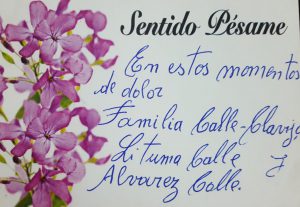 Sentido Pésame
En estos momentos
de dolor
Familia Calle-Clavijo
Lituma Calle y
Alvarez Calle.